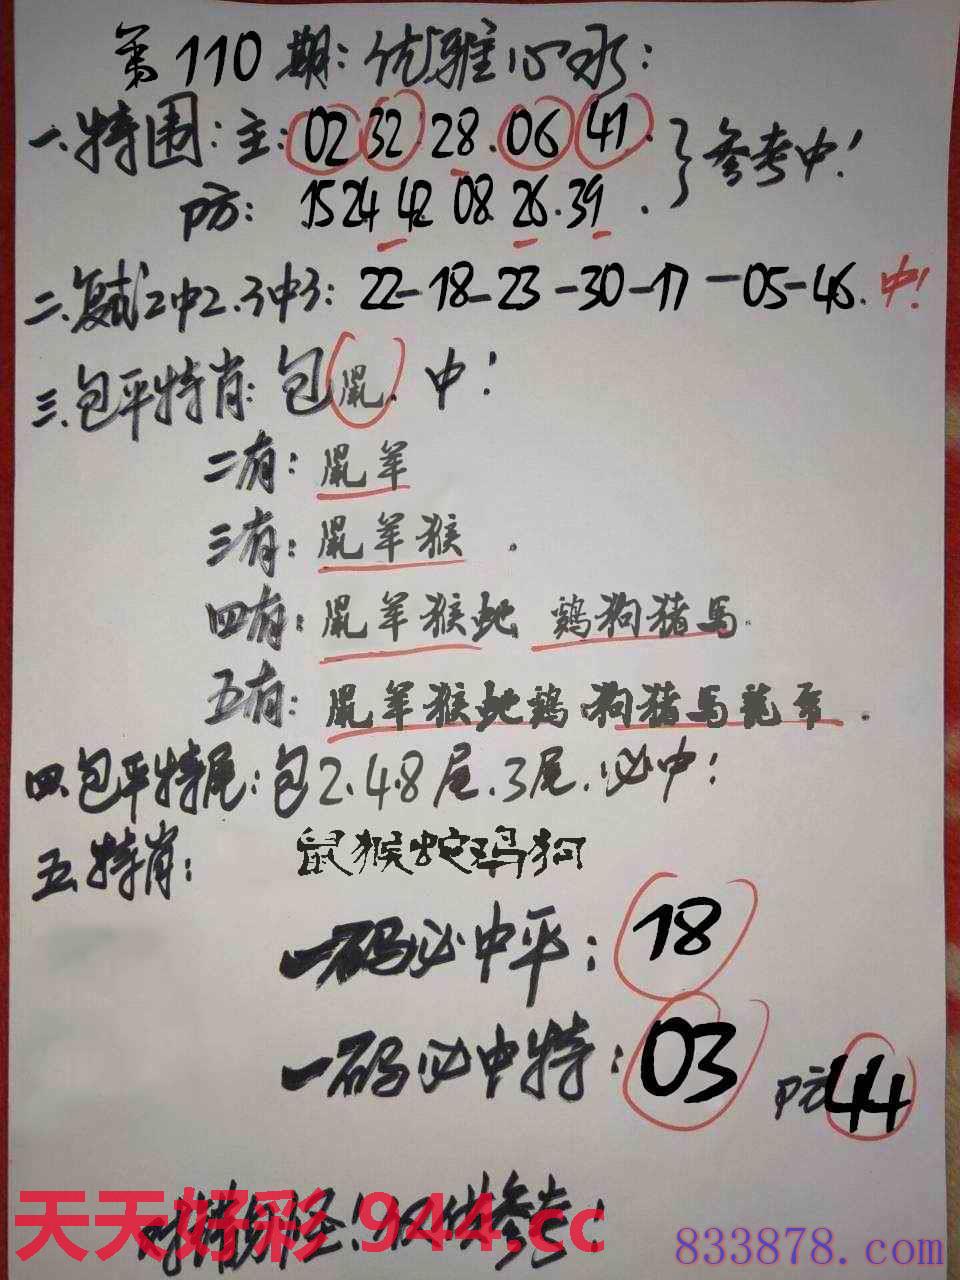 第110期：优雅心水：
一.特围：主：02 32 28.06 41. 参考中！
防：15 24 42 08 26.39.
二.复式2中2.3中3：22-18-23-30-17-05-46.中！
三.包平特肖：包鼠.中！
二有：鼠羊
三有：鼠羊猴.
四有：鼠羊猴蛇 鸡狗猪马.
五有：鼠羊猴蛇鸡 狗猪马龙
四.包平特尾：包2.4.8尾.3尾.必中！
五.特肖： 鼠猴蛇鸡狗
一码必中平：18
一码必中特：03 防44
天天好彩 944.cc
仅供参考！
833878.com